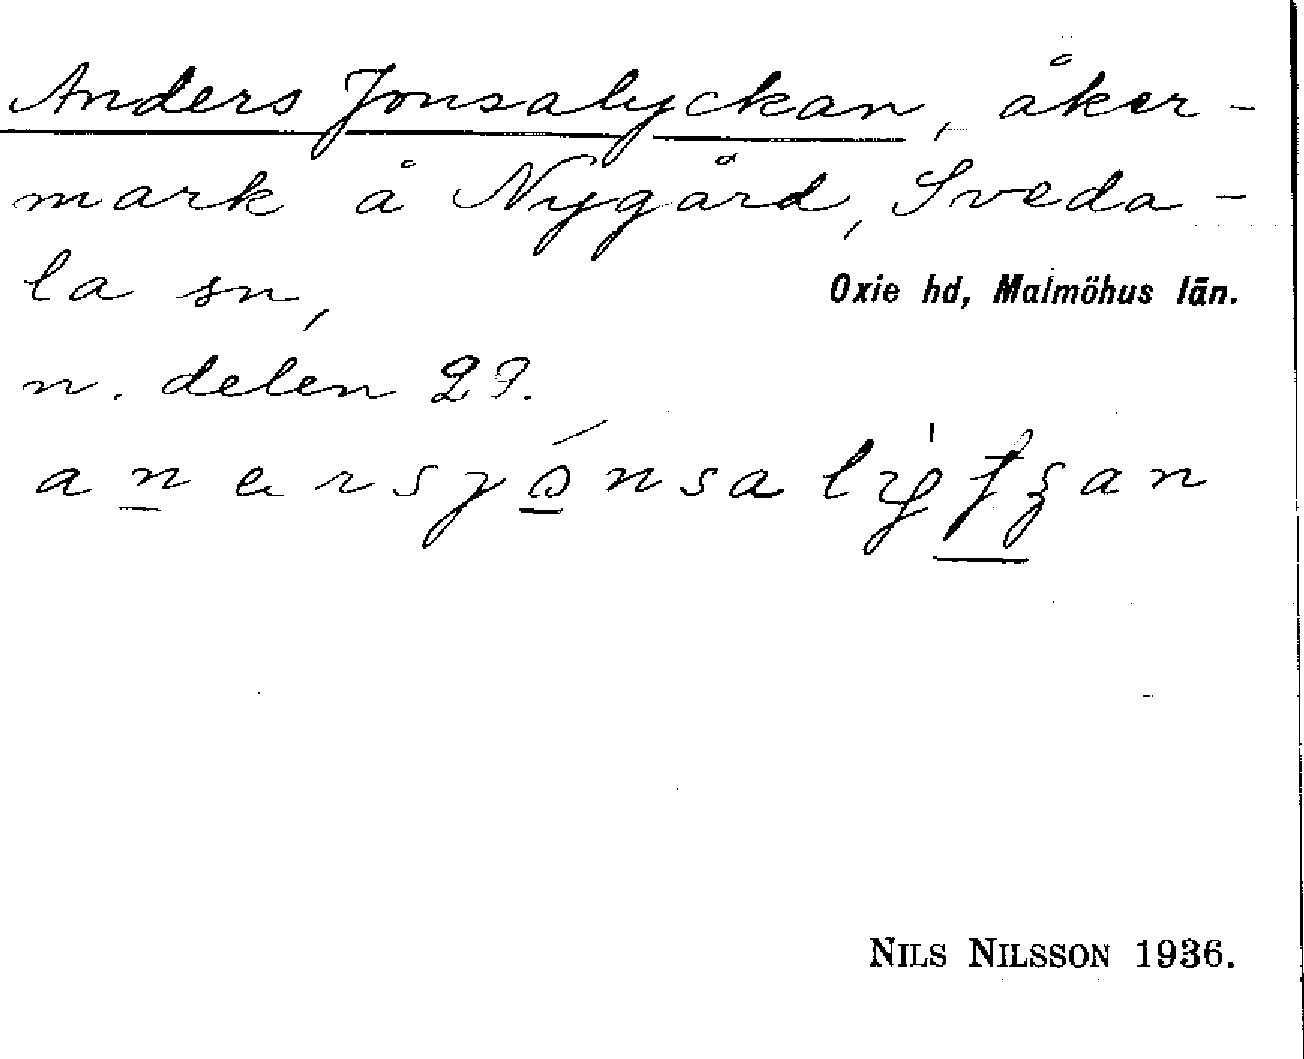 Anders Jonsalyckan, åker-
mark å Nygård, Sveda-
la sn,
Oxie hd, Malmöhus län.
n. delen 2?.
NILS NILSSON 1936.